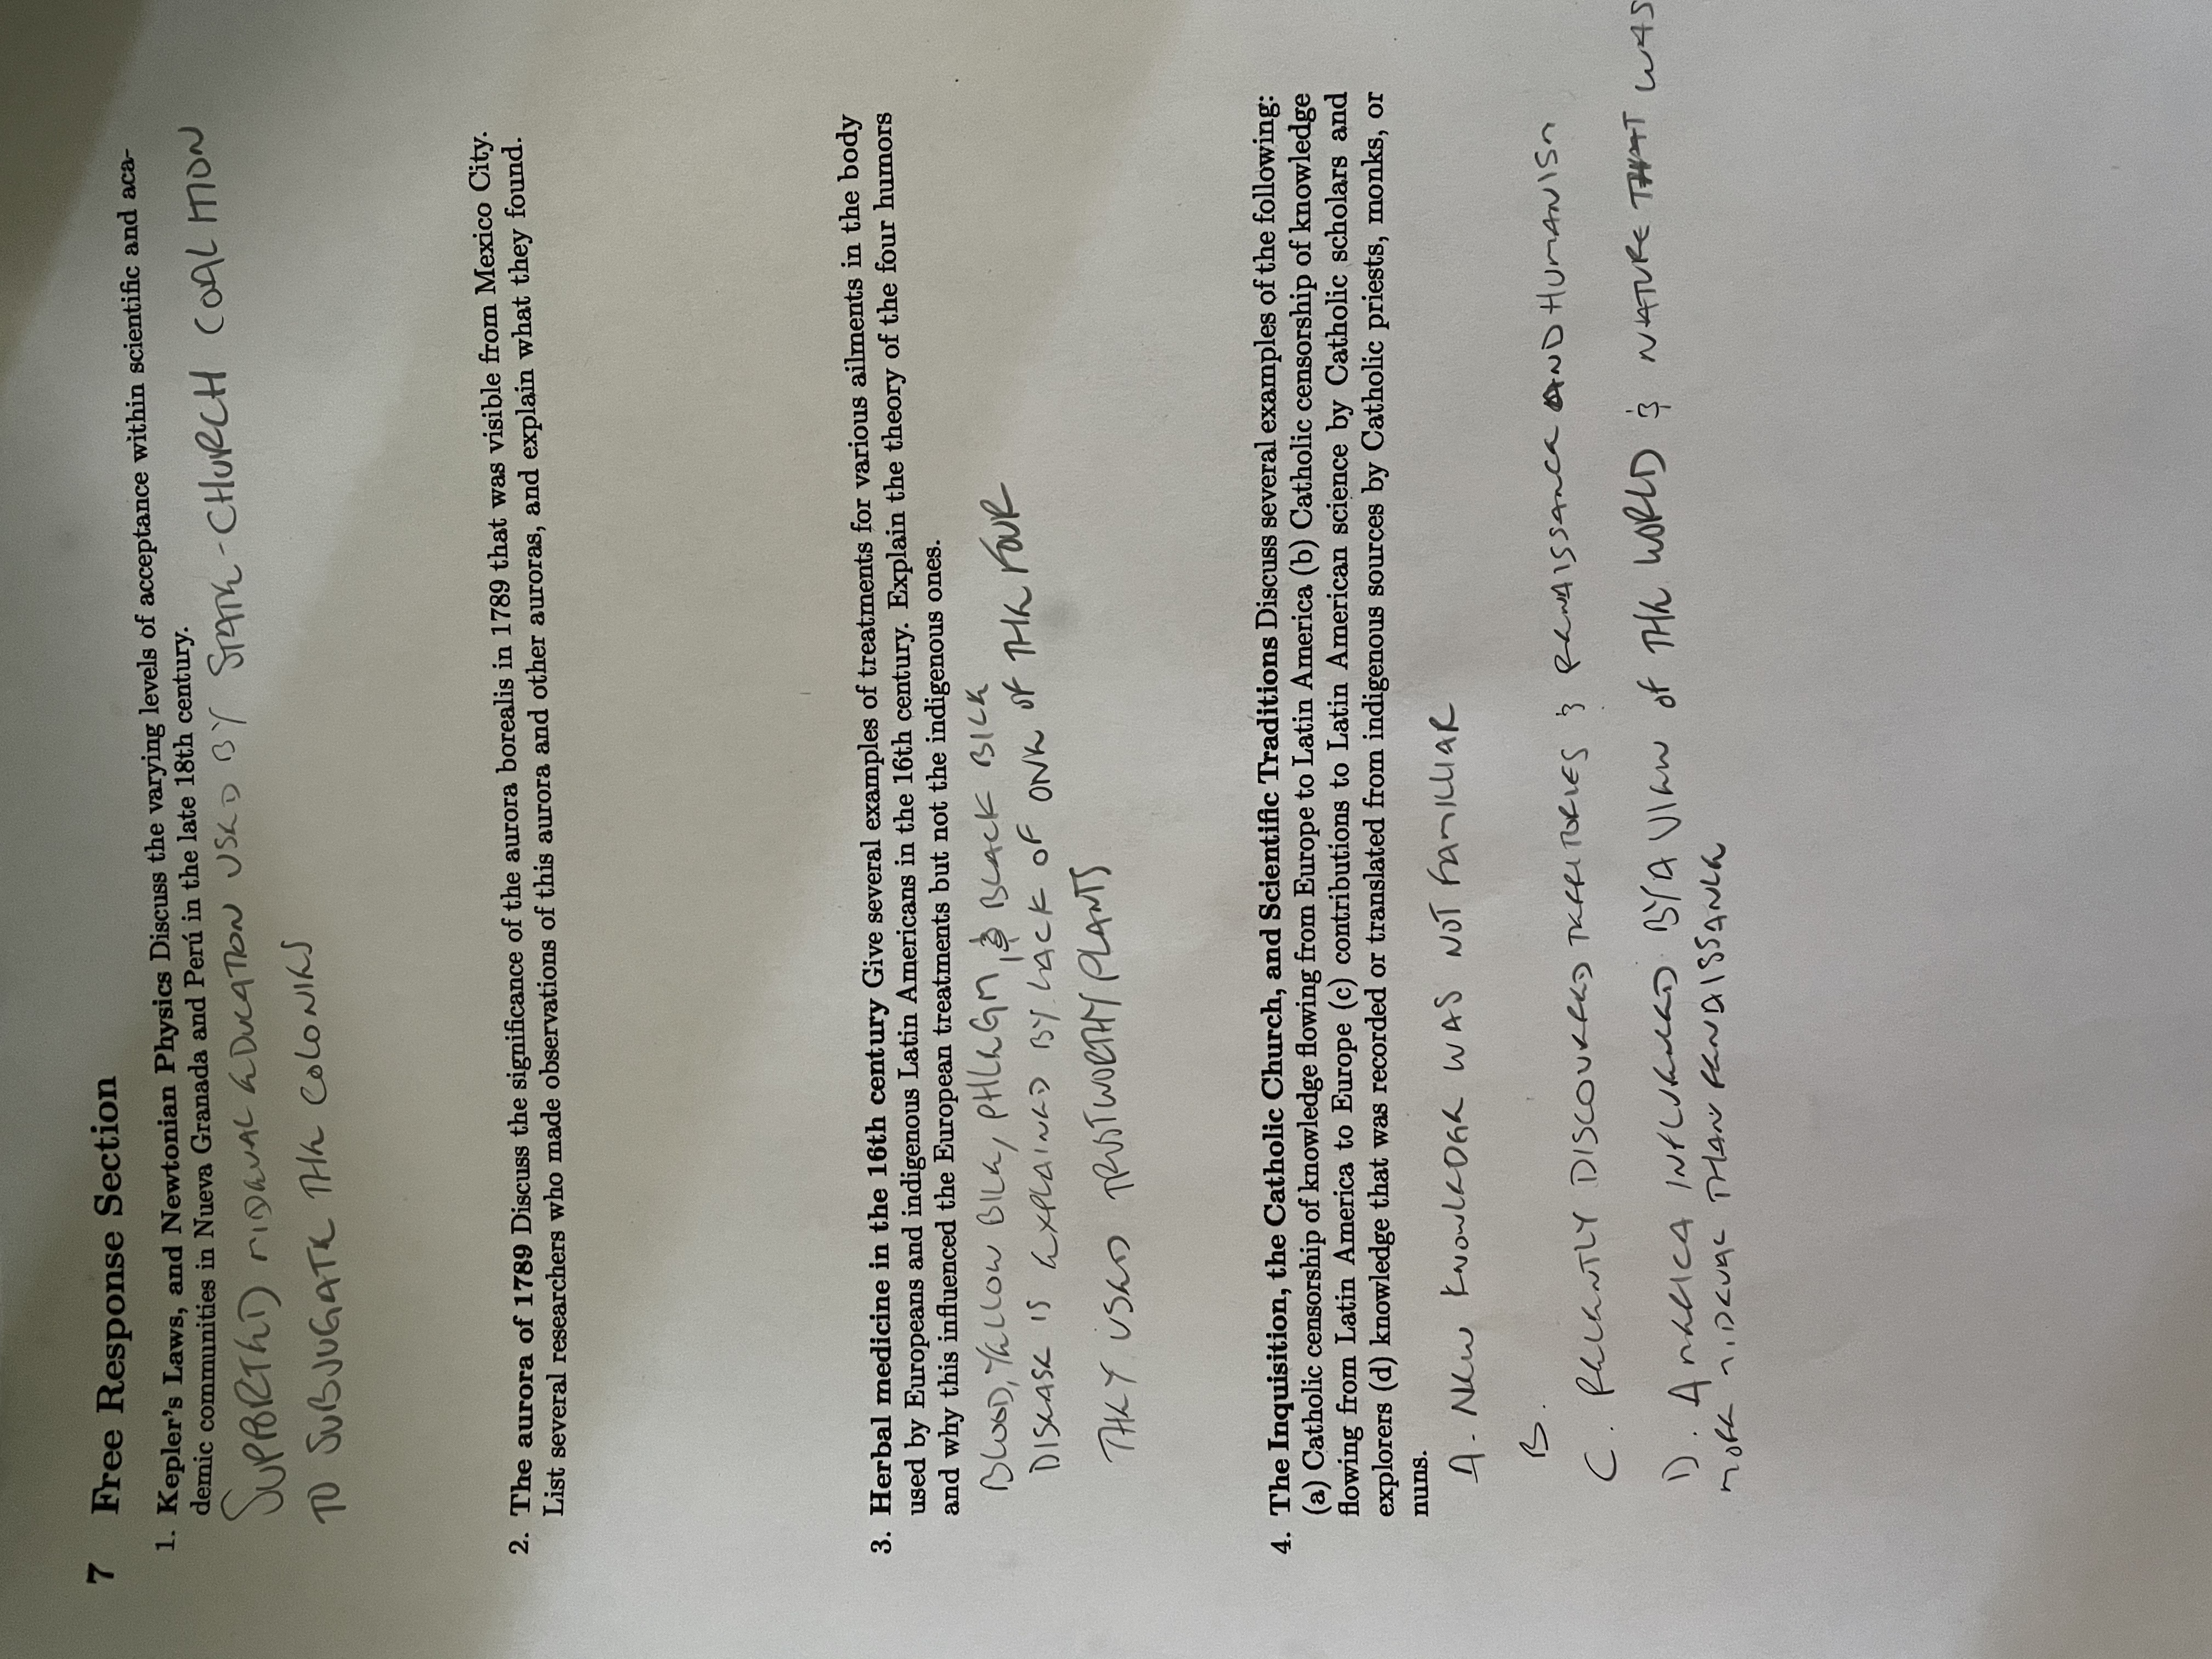 7 Free Response Section
1. Kepler's Laws, and Newtonian Physics Discuss the varying levels of acceptance within scientific and aca-
demic communities in Nueva Granada and Perú in the late 18th century.
SUPPORTED MIDEVAL EDUCATION USED BY STATE-CHURCH COALITION
TO SUBJUGATE THE COLONIES
2. The aurora of 1789 Discuss the significance of the aurora borealis in 1789 that was visible from Mexico City.
List several researchers who made observations of this aurora and other auroras, and explain what they found.
3. Herbal medicine in the 16th century Give several examples of treatments for various ailments in the body
used by Europeans and indigenous Latin Americans in the 16th century. Explain the theory of the four humors
and why this influenced the European treatments but not the indigenous ones.
BLOOD, YELLOW BILE, PHLEGM, & BLACK BILE
DISEASE IS EXPLAINED BY LACK OF ONE OF THE FOUR
THEY USED TRUSTWORTHY PLANTS
4. The Inquisition, the Catholic Church, and Scientific Traditions Discuss several examples of the following:
(a) Catholic censorship of knowledge flowing from Europe to Latin America (b) Catholic censorship of knowledge
flowing from Latin America to Europe (c) contributions to Latin American science by Catholic scholars and
explorers (d) knowledge that was recorded or translated from indigenous sources by Catholic priests, monks, or
nuns.
A. NEW KNOWLEDGE WAS NOT FAMILLIAR
B.
C. RECENTLY DISCOVERED TERRITORIES & RENAISSANCE AND HUMANISM
D. AMERICA INFLUENCED BY A VIEW OF THE WORLD & NATURE THAT WAS
MORE MIDEVAL THAN RENAISSANCE